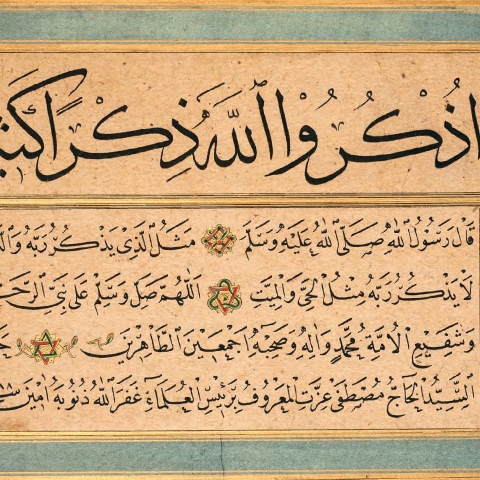 اذْكُرُوا اللَّهَ ذِكْرًا
قَالَ رَسُولُ اللَّهِ صَلَّى اللَّهُ عَلَيْهِ وَسَلَّمَ مَثَلُ الَّذِي يَذْكُرُ رَبَّهُ
لَا يَذْكُرُ رَبَّهُ مَثَلُ الْحَيِّ وَالْمَيِّتِ اَللَّهُمَّ صَلِّ وَسَلِّمْ عَلَى نَبِيِّ
وَشَفِيعِ الْاُمَّةِ مُحَمَّدٍ وَاٰلِهِ وَصَحْبِهِ اَجْمَعِينَ الطَّاهِرِينَ
السَّيِّدُ الْحَاجُّ مُصْطَفَى عِزَّتْ الْمَعْرُوفُ بِرَئِيسِ الْعُلَمَاءِ غَفَرَ اللَّهُ ذُنُوبَهُ اٰمِينَ